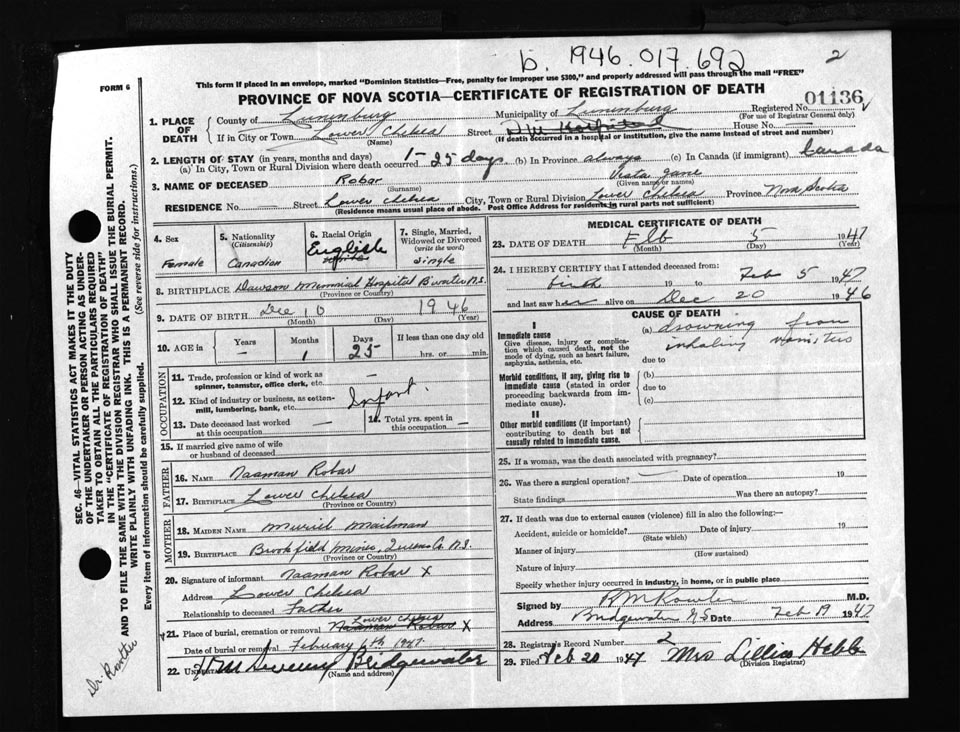 b. 1946.017.692
2
FORM 6
This form if placed in an envelope, marked "Dominion Statistics—Free, penalty for improper use $300," and properly addressed will pass through the mail "FREE"
PROVINCE OF NOVA SCOTIA—CERTIFICATE OF REGISTRATION OF DEATH
Registered No. 01136
(For use of Registrar General only)
1. PLACE OF DEATH
County of Lunenburg Municipality of Lunenburg
If in City or Town Lower Chelsea Street D M Hospital House No. —
(Name) (If death occurred in a hospital or institution, give the name instead of street and number)
2. LENGTH OF STAY (in years, months and days)
(a) In City, Town or Rural Division where death occurred 1 - 25 days. (b) In Province always (c) In Canada (if immigrant) Canada
3. NAME OF DECEASED Robar Vista Jane
(Surname) (Given name or names)
RESIDENCE No. Street Lower Chelsea City, Town or Rural Division Lower Chelsea Province Nova Scotia
(Residence means usual place of abode. Post Office Address for residents in rural parts not sufficient)
4. Sex
Female
5. Nationality
(Citizenship)
Canadian
6. Racial Origin
English
white
7. Single, Married, Widowed or Divorced
(write the word)
Single
8. BIRTHPLACE Dawson Memorial Hospital B'water N.S.
(Province or Country)
9. DATE OF BIRTH Dec 10 1946
(Month) (Day) (Year)
10. AGE in
Years Months Days If less than one day old
— 1 25 hrs. or min.
OCCUPATION
11. Trade, profession or kind of work as spinner, teamster, office clerk, etc. —
12. Kind of industry or business, as cotton-mill, lumbering, bank, etc. Infant.
13. Date deceased last worked at this occupation —
14. Total yrs. spent in this occupation —
15. If married give name of wife or husband of deceased
FATHER
16. Name Naaman Robar
17. Birthplace Lower Chelsea
(Province or Country)
MOTHER
18. Maiden Name Muriel Mailman
19. Birthplace Brookfield Mines, Queens Co. N.S.
(Province or Country)
20. Signature of informant Naaman Robar X
Address Lower Chelsea
Relationship to deceased Father
21. Place of burial, cremation or removal Lower Chelsea Naaman Robar X
Date of burial or removal February 6th 1947
22. Undertaker Sweeny Bridgewater
(Name and address)
MEDICAL CERTIFICATE OF DEATH
23. DATE OF DEATH Feb 5 1947
(Month) (Day) (Year)
24. I HEREBY CERTIFY that I attended deceased from:
birth 19 to Feb 5 1947
and last saw her alive on Dec 20 1946
CAUSE OF DEATH
I
Immediate cause
Give disease, injury or complication which caused death, not the mode of dying, such as heart failure, asphyxia, asthenia, etc.
(a) drowning from
inhaling vomitus
due to
Morbid conditions, if any, giving rise to immediate cause (stated in order proceeding backwards from immediate cause).
(b)
due to
(c)
II
Other morbid conditions (if important) contributing to death but not causally related to immediate cause.
25. If a woman, was the death associated with pregnancy?
26. Was there a surgical operation? — Date of operation 19
State findings Was there an autopsy?
27. If death was due to external causes (violence) fill in also the following:—
Accident, suicide or homicide? Date of injury 19
(State which)
Manner of injury
(How sustained)
Nature of injury
Specify whether injury occurred in industry, in home, or in public place
Signed by M.D.
Address Bridgewater N.S. Date Feb 19 1947
28. Registrar's Record Number 2
29. Filed Feb 20 1947 Mrs Lillian Hebb
(Division Registrar)
SEC. 46—VITAL STATISTICS ACT MAKES IT THE DUTY
OF THE UNDERTAKER OR PERSON ACTING AS UNDERTAKER TO OBTAIN ALL THE PARTICULARS REQUIRED
IN THE "CERTIFICATE OF REGISTRATION OF DEATH"
AND TO FILE THE SAME WITH THE DIVISION REGISTRAR WHO SHALL ISSUE THE BURIAL PERMIT.
WRITE PLAINLY WITH UNFADING INK. THIS IS A PERMANENT RECORD.
Every item of information should be carefully supplied. (See reverse side for instructions.)